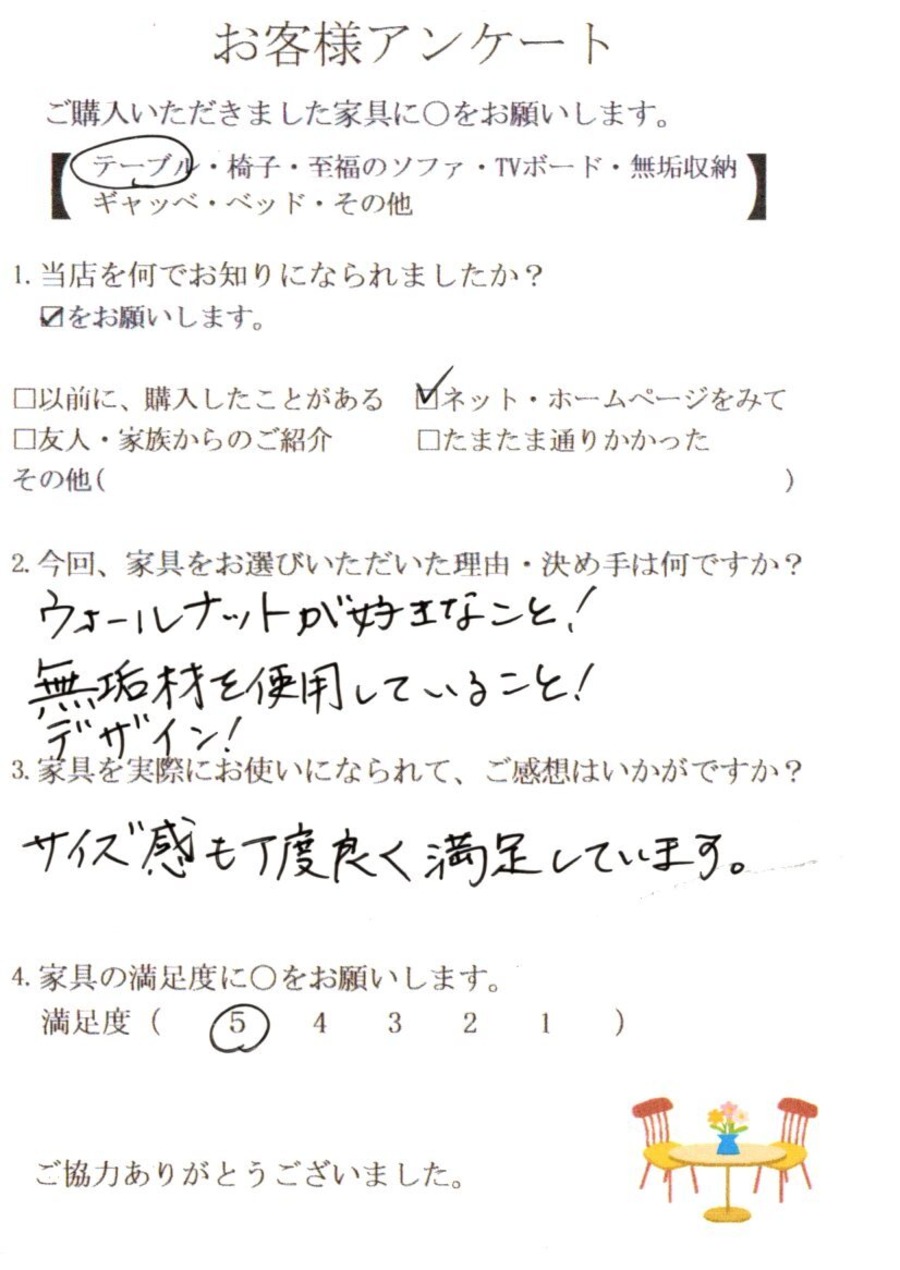 お客様アンケート
ご購入いただきました家具に〇をお願いします。
【テーブル・椅子・至福のソファ・TVボード・無垢収納
ギャッベ・ベッド・その他】
1. 当店を何でお知りになられましたか？
☑をお願いします。
□以前に、購入したことがある ☑ネット・ホームページをみて
□友人・家族からのご紹介 □たまたま通りかかった
その他( )
2. 今回、家具をお選びいただいた理由・決め手は何ですか？
ウォールナットが好きなこと！
無垢材を使用していること！
デザイン！
3. 家具を実際にお使いになられて、ご感想はいかがですか？
サイズ感も丁度良く満足しています。
4. 家具の満足度に〇をお願いします。
満足度 ( 5 4 3 2 1 )
ご協力ありがとうございました。